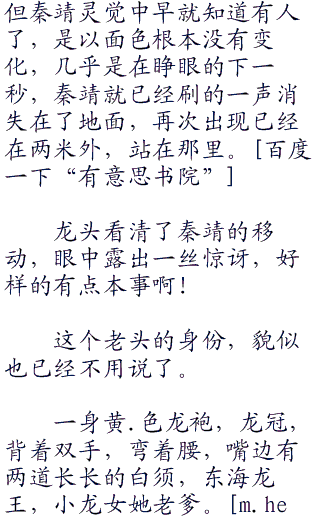 但秦靖灵觉中早就知道有人
了，是以面色根本没有变
化，几乎是在睁眼的下一
秒，秦靖就已经刷的一声消
失在了地面，再次出现已经
在两米外，站在那里。[百度
一下“有意思书院”]
龙头看清了秦靖的移
动，眼中露出一丝惊讶，好
样的有点本事啊！
这个老头的身份，貌似
也已经不用说了。
一身黄.色龙袍，龙冠，
背着双手，弯着腰，嘴边有
两道长长的白须，东海龙
王，小龙女她老爹。[m.he